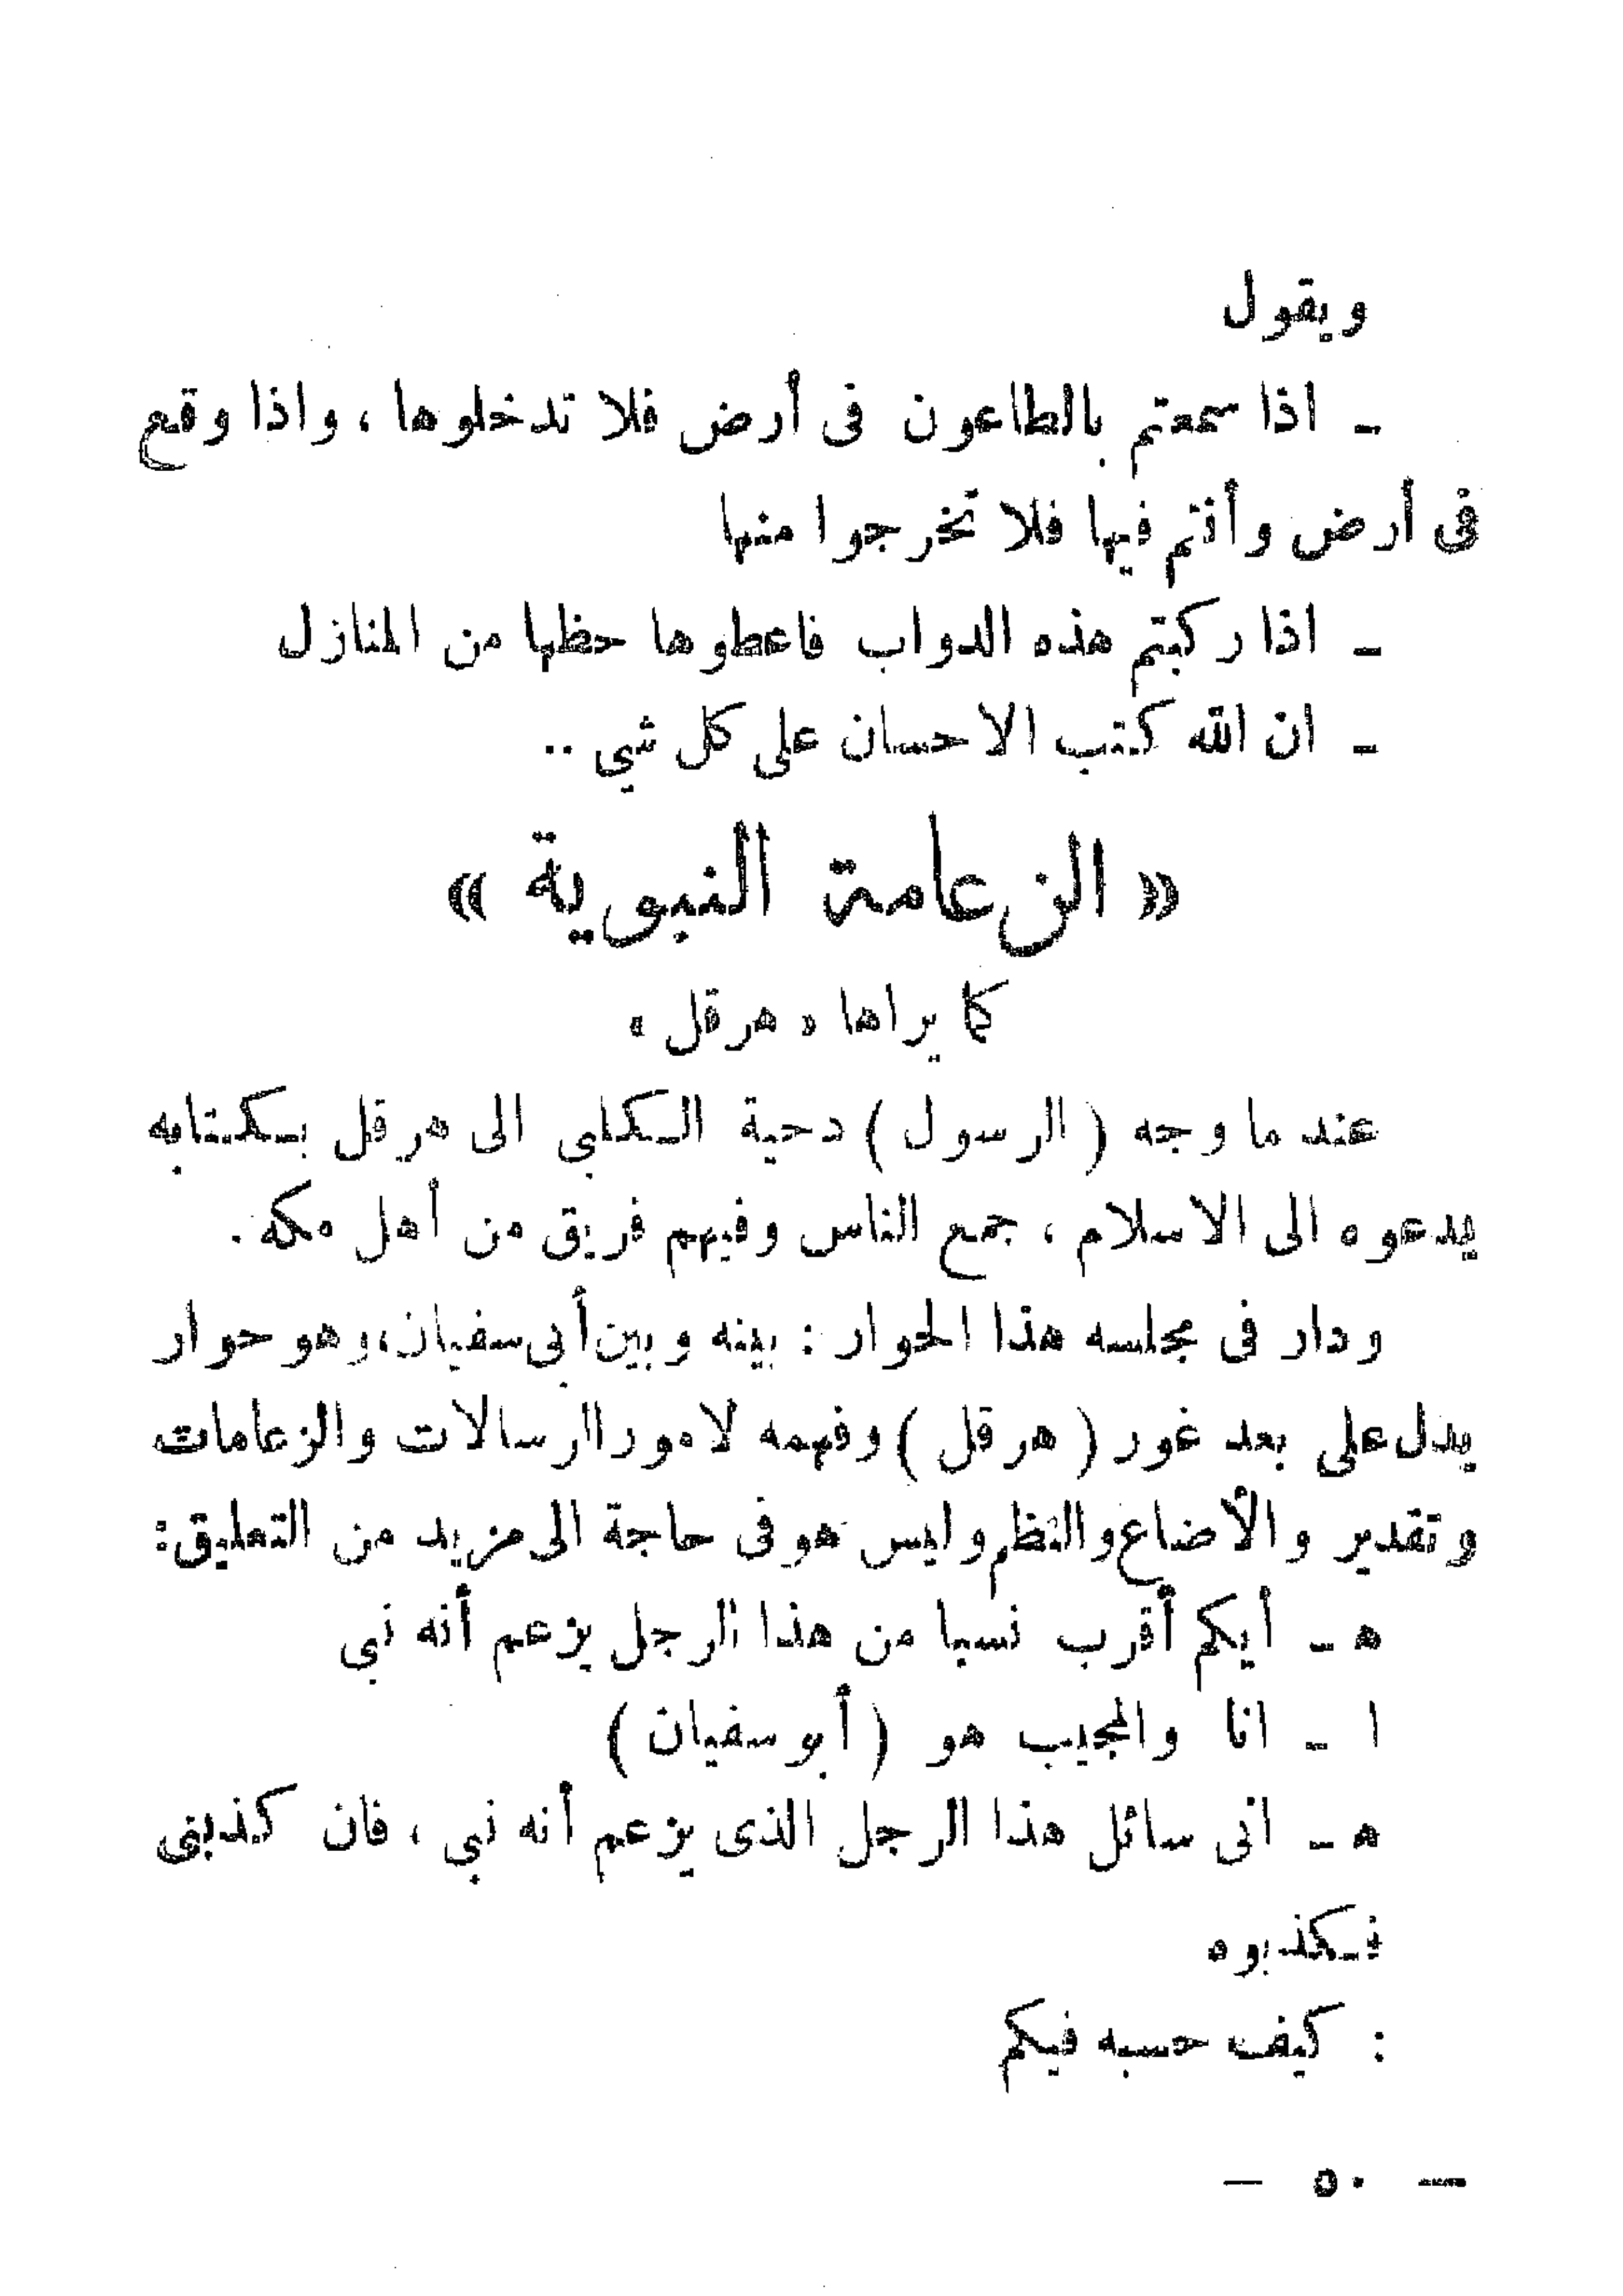 ويقول
ـ اذا سمعتم بالطاعون فى أرض فلا تدخلوها ، واذا وقع
فى أرض وأنتم فيها فلا تخرجوا منها
ـ اذا ركبتم هذه الدواب فاعطوها حظها من المنازل
ـ ان الله كتب الاحسان على كل شي ..
« الزعامة النبوية »
كما يراها « هرقل »
عند ما وجه ( الرسول ) دحية الكلبى الى هرقل بكتابه
يدعوه الى الاسلام ، جمع الناس وفيهم فريق من أهل مكه .
ودار فى مجلسه هذا الحوار : بينه وبين أبى سفيان، وهو حوار
يدل على بعد غور ( هرقل ) وفهمه لامور الرسالات والزعامات
وتقدير والأضاع والنظم وليس هو فى حاجة الى مزيد من التعليق:
ه ـ أيكم أقرب نسبا من هذا الرجل يزعم أنه نبى
ا ـ انا والمجيب هو ( أبو سفيان )
ه ـ انى سائل هذا الرجل الذى يزعم أنه نبي ، فان كذبنى
فكذبوه
: كيف حسبه فيكم
— ٥٠ —